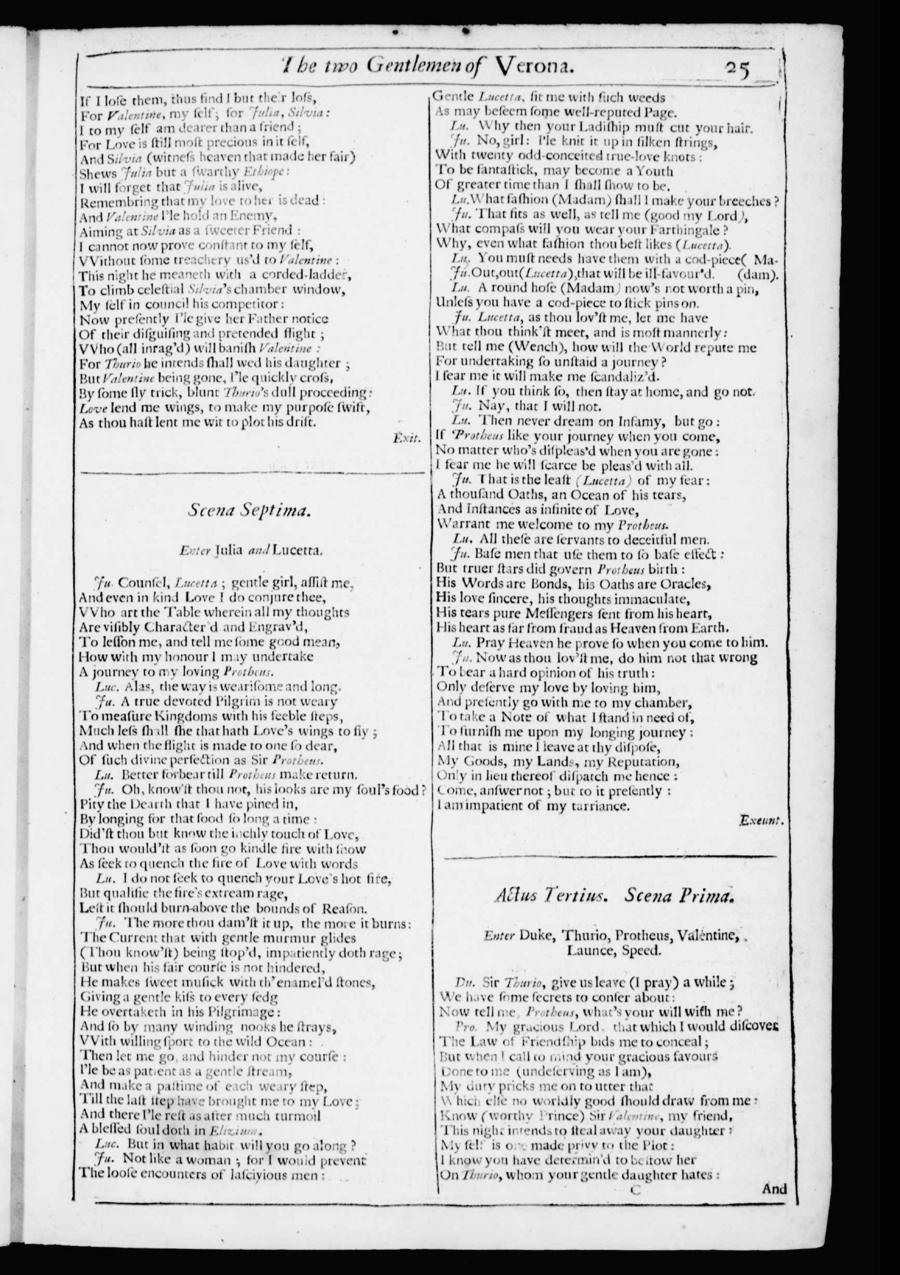 The two Gentlemen of Verona. 25
If I loſe them, thus find I but their loſs,
For Valentine, my ſelf; for Julia, Silvia:
I to my ſelf am dearer than a friend;
For Love is ſtill moſt precious in it ſelf,
And Silvia (witneſs heaven that made her fair)
Shews Julia but a ſwarthy Ethiope:
I will forget that Julia is alive,
Remembring that my love to her is dead:
And Valentine I'le hold an Enemy,
Aiming at Silvia as a ſweeter Friend:
I cannot now prove conſtant to my ſelf,
VVithout ſome treachery us'd to Valentine:
This night he meaneth with a corded-ladder,
To climb celeſtial Silvia's chamber window,
My ſelf in council his competitor:
Now preſently I'le give her Father notice
Of their diſguiſing and pretended flight;
VVho (all inrag'd) will baniſh Valentine:
For Thurio he intends ſhall wed his daughter;
But Valentine being gone, I'le quickly croſs,
By ſome ſly trick, blunt Thurio's dull proceeding:
Love lend me wings, to make my purpoſe ſwift,
As thou haſt lent me wit to plot his drift.
Exit.
Scena Septima.
Enter Julia and Lucetta.
Ju. Counſel, Lucetta; gentle girl, aſſiſt me,
And even in kind Love I do conjure thee,
VVho art the Table wherein all my thoughts
Are viſibly Character'd and Engrav'd,
To leſſon me, and tell me ſome good mean,
How with my honour I may undertake
A journey to my loving Protheus.
Luc. Alas, the way is weariſome and long.
Ju. A true devoted Pilgrim is not weary
To meaſure Kingdoms with his feeble ſteps,
Much leſs ſhall ſhe that hath Love's wings to fly;
And when the flight is made to one ſo dear,
Of ſuch divine perfection as Sir Protheus.
Lu. Better forbear till Protheus make return.
Ju. Oh, know'ſt thou not, his looks are my ſoul's food?
Pity the Dearth that I have pined in,
By longing for that food ſo long a time:
Did'ſt thou but know the inchly touch of Love,
Thou would'ſt as ſoon go kindle fire with ſnow
As ſeek to quench the fire of Love with words
Lu. I do not ſeek to quench your Love's hot fire,
But qualifie the fire's extream rage,
Leſt it ſhould burn above the bounds of Reaſon.
Ju. The more thou dam'ſt it up, the more it burns:
The Current that with gentle murmur glides
(Thou know'ſt) being ſtop'd, impatiently doth rage;
But when his fair courſe is not hindered,
He makes ſweet muſick with th' enamel'd ſtones,
Giving a gentle kiſs to every ſedg
He overtaketh in his Pilgrimage:
And ſo by many winding nooks he ſtrays,
VVith willing ſport to the wild Ocean:
Then let me go, and hinder not my courſe:
I'le be as patient as a gentle ſtream,
And make a paſtime of each weary ſtep,
Till the laſt ſtep have brought me to my Love;
And there I'le reſt as after much turmoil
A bleſſed ſoul doth in Elizium.
Luc. But in what habit will you go along?
Ju. Not like a woman; for I would prevent
The looſe encounters of laſciyious men:
Gentle Lucetta, fit me with ſuch weeds
As may beſeem ſome well-reputed Page.
Lu. Why then your Ladiſhip muſt cut your hair.
Ju. No, girl: I'le knit it up in ſilken ſtrings,
With twenty odd-conceited true-love knots:
To be fantaſtick, may become a Youth
Of greater time than I ſhall ſhow to be.
Lu. What faſhion (Madam) ſhall I make your breeches?
Ju. That fits as well, as tell me (good my Lord),
What compaſs will you wear your Farthingale?
Why, even what faſhion thou beſt likes (Lucetta).
Lu. You muſt needs have them with a cod-piece( Ma-
Ju. Out, out (Lucetta), that will be ill-favour'd. (dam).
Lu. A round hoſe (Madam) now's not worth a pin,
Unleſs you have a cod-piece to ſtick pins on.
Ju. Lucetta, as thou lov'ſt me, let me have
What thou think'ſt meet, and is moſt mannerly:
But tell me (Wench), how will the World repute me
For undertaking ſo unſtaid a journey?
I fear me it will make me ſcandaliz'd.
Lu. If you think ſo, then ſtay at home, and go not.
Ju. Nay, that I will not.
Lu. Then never dream on Infamy, but go:
If Protheus like your journey when you come,
No matter who's diſpleas'd when you are gone:
I fear me he will ſcarce be pleas'd with all.
Ju. That is the leaſt (Lucetta) of my fear:
A thouſand Oaths, an Ocean of his tears,
And Inſtances as infinite of Love,
Warrant me welcome to my Protheus.
Lu. All theſe are ſervants to deceitful men.
Ju. Baſe men that uſe them to ſo baſe effect:
But truer ſtars did govern Protheus birth:
His Words are Bonds, his Oaths are Oracles,
His love ſincere, his thoughts immaculate,
His tears pure Meſſengers ſent from his heart,
His heart as far from fraud as Heaven from Earth.
Lu. Pray Heaven he prove ſo when you come to him.
Ju. Now as thou lov'ſt me, do him not that wrong
To bear a hard opinion of his truth:
Only deſerve my love by loving him,
And preſently go with me to my chamber,
To take a Note of what I ſtand in need of,
To furniſh me upon my longing journey:
All that is mine I leave at thy diſpoſe,
My Goods, my Lands, my Reputation,
Only in lieu thereof diſpatch me hence:
Come, anſwer not; but to it preſently:
I am impatient of my tarriance.
Exeunt.
Actus Tertius. Scena Prima.
Enter Duke, Thurio, Protheus, Valentine,
Launce, Speed.
Du. Sir Thurio, give us leave (I pray) a while;
We have ſome ſecrets to confer about:
Now tell me, Protheus, what's your will with me?
Pro. My gracious Lord, that which I would diſcover
The Law of Friendſhip bids me to conceal;
But when I call to mind your gracious favours
Done to me (undeſerving as I am),
My duty pricks me on to utter that
Which elſe no worldly good ſhould draw from me:
Know (worthy Prince) Sir Valentine, my friend,
This night intends to ſteal away your daughter:
My ſelf is one made privy to the Plot:
I know you have determin'd to beſtow her
On Thurio, whom your gentle daughter hates:
C And